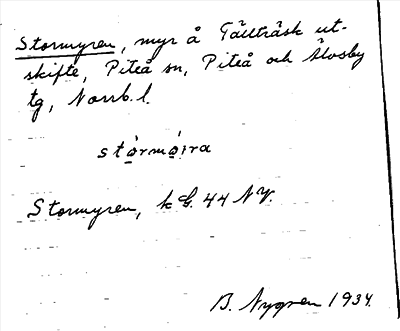 Stormyren, myr å Tällträsk ut-
skifte, Piteå sn, Piteå och Älvsby
tg, Norrb. l.
stọ́rmọ́ıra
Stormyren, k G. 44 NV.
B. Nygren 1934.